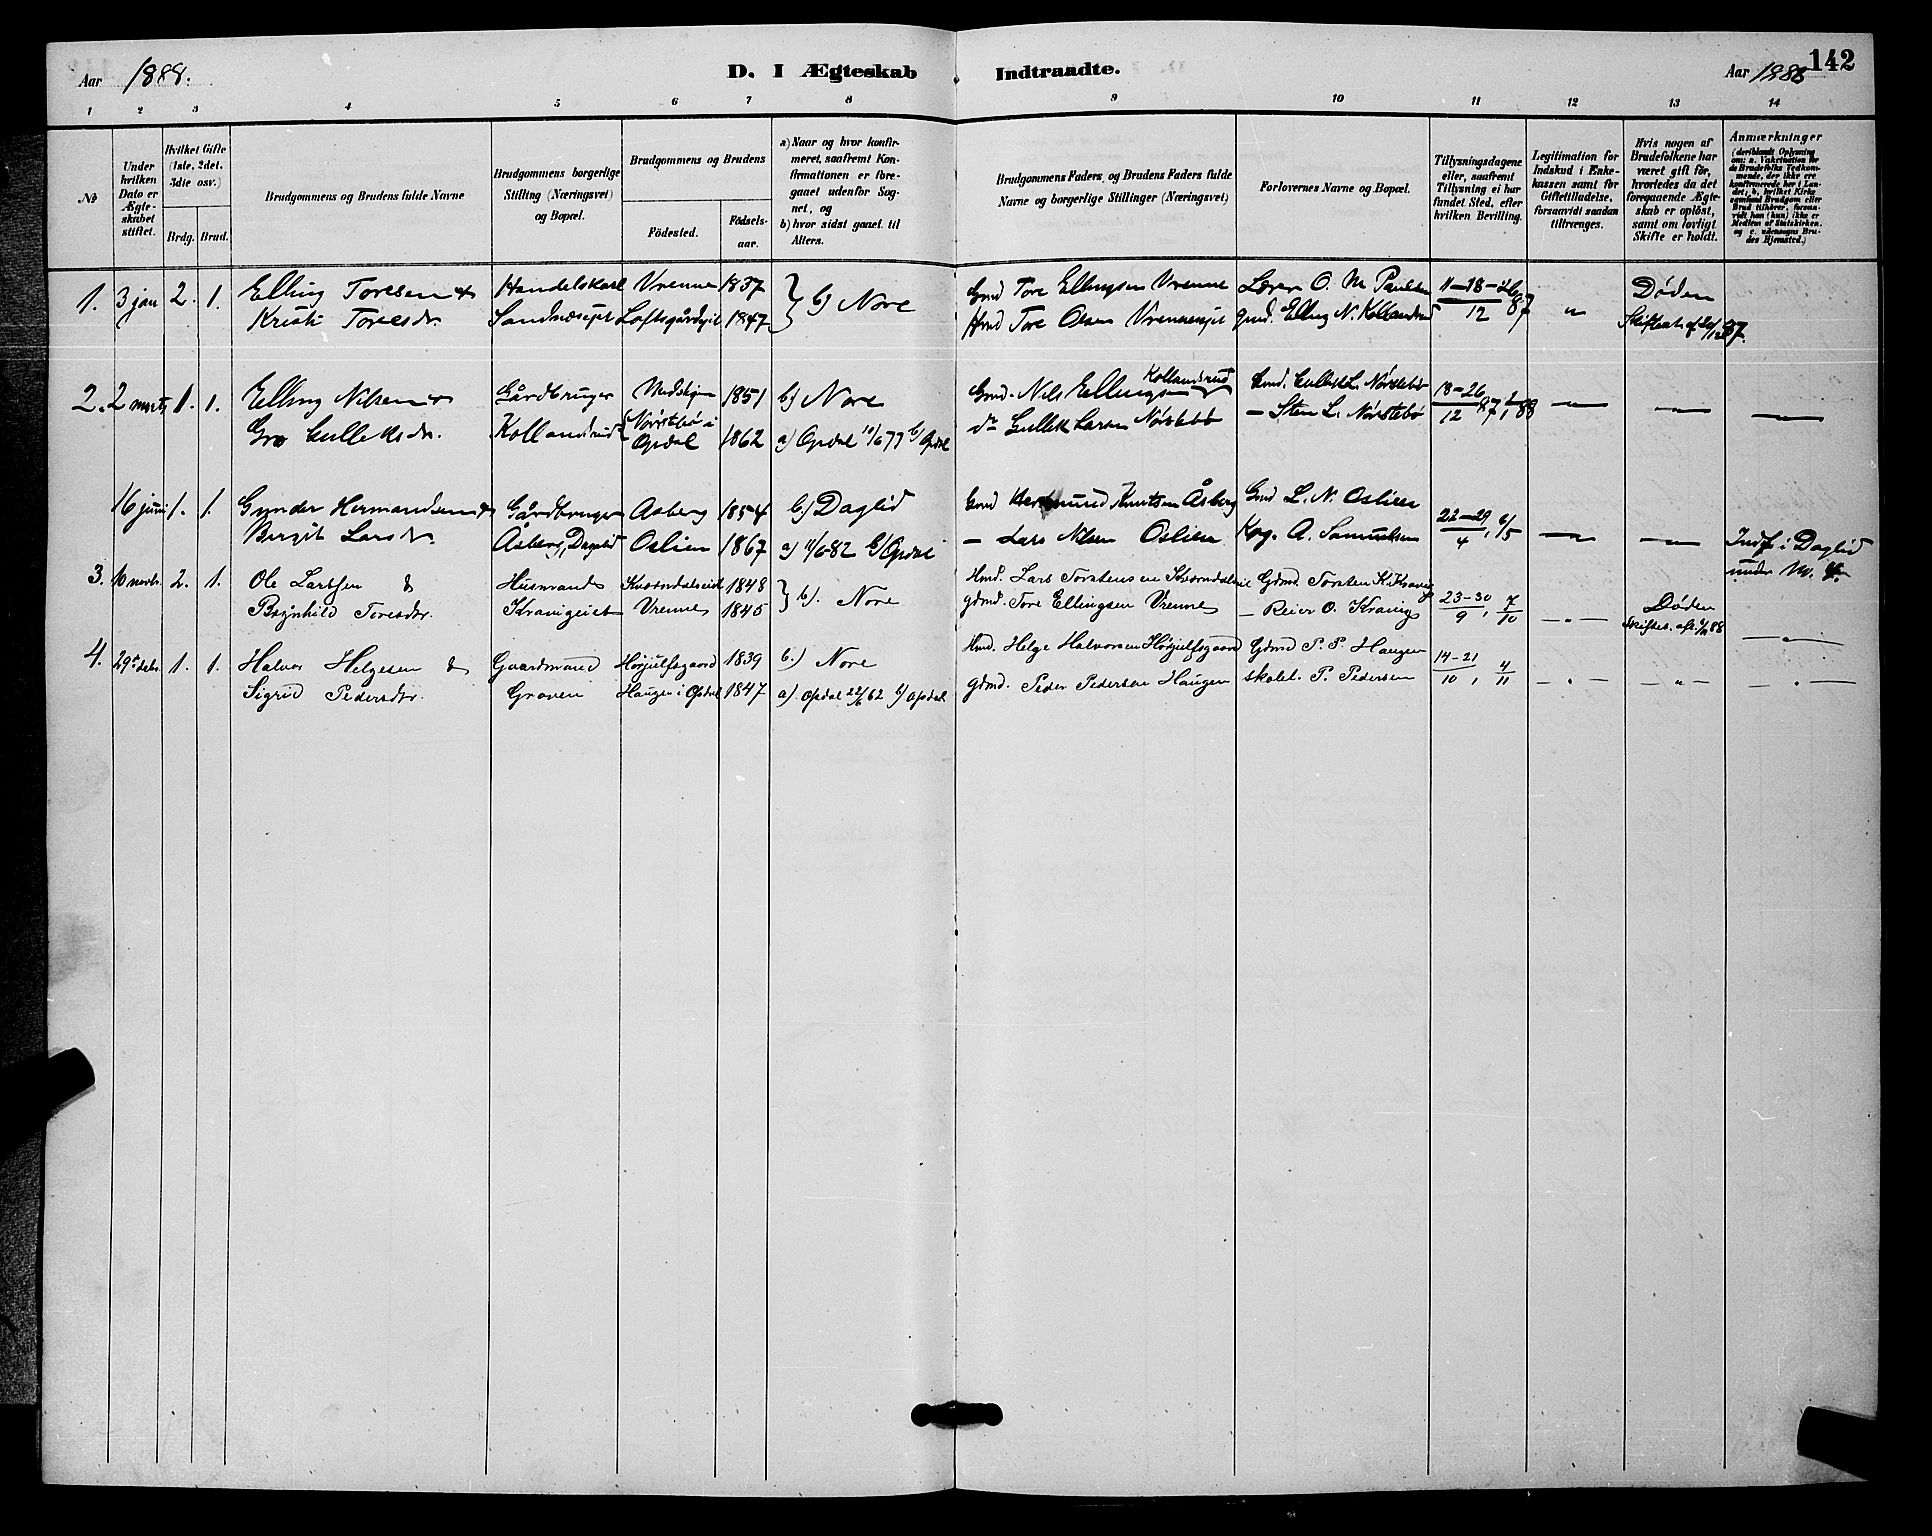 Aar 1888. D. I Ægteskab Indtraadte. Aar 1888 142
1 2 3 4 5 6 7 8 9 10 11 12 13 14
No
Under hvilken Dato er Ægteskabet stiftet.
Hvilket Gifte (1ste, 2det, 3die osv.)
Brdg. Brud.
Brudgommens og Brudens fulde Navne
Brudgommens borgerlige Stilling (Næringsvei) og Bopæl.
Brudgommens og Brudens
Födested. Födselsaar.
a) Naar og hvor konfirmeret, saafremt Konfirmationen er foregaaet udenfor Sognet, og
b) hvor sidst gaaet til Alters.
Brudgommens Faders, og Brudens Faders fulde Navne og borgerlige Stillinger (Næringsvei)
Forlovernes Navne og Bopæl.
Tillysningsdagene eller, saafremt Tillysning ei har fundet Sted, efter hvilken Bevilling.
Legitimation for Indskud i Enkekassen samt for Giftetilladelse, forsaavidt saadan tiltrænges.
Hvis nogen af Brudefolkene har været gift för, hvorledes da det foregaaende Ægteskab er oplöst, samt om lovligt Skifte er holdt.
Anmærkninger
1. 3 jan 2. 1. Elling Toresen & Handelskarl Vrenne 1837 } b) Nore Gmd Tore Ellingsen Vrenne Lærer O. M. Paulsen 11-18-26 Döden
Kristi Toresdr. Sandnæsejet Loftsgårdejet 1847 Hmd Tore Olsen Vrenneejet gmd. Elling N. Kollandsrud 12 87 " Skifteat. af 20/12 87.
2. 2 marts 1. 1. Elling Nilsen & Gårdbruger 1851 b) Nore Gmd. Nils Ellingsen Kollandsrud Gmd. Gullik L. Nörstebö 18-26
Gro Gulleksdr. Kollandsrud Nörstebö i Opdal 1862 a) Opdal 10/6 77 b) Opdal do Gullik Larsen Nörstebö — Sten L. Nörstebö 12 87, 1/1 88 — — —
16 juni 1. 1. Gunder Hermandsen & Gårdbruger Aasberg 1854 b) Daglid Gmd Hermund Knutsen Åsberg Gmd L. N. Oslien 22-29
Bergit Larsdr. Åsberg, Daglid Oslien 1867 a) 11/6 82 b) Opdal — Lars Nilsen Oslien Kög. A. Samuelsen 4, 6/5 — — Indf. i Daglid under No. 4
3. 10 novbr. 2. 1. Ole Larssen & Husmand 1848 } b). Nore Hmd. Lars Torstensen Gdmd. Torsten K. Kravig 23-30 Döden
Brynhild Toresdr. Kravigeiet Vrenne 1845 gdmd. Tore Ellingsen Vrenne — Reier O. Kravig 9, 7/10 — " — Skiftes. —"—
4. 29de debr. 1. 1. Halvor Helgesen & Gaardmand Hörjulfsgaard 1839 b.) Nore Hmd. Helge Halvorsen Hörjulfsgaard Gdmd P. P. Haugen 14-21
Sigrid Pedersdr. Graven Haugen i Opdal 1847 a). Opdal 22/6 62 b) Opdal gdmd. Peder Pedersen Haugen skolel. P. Pedersen 10, 4/11 — " — — " — — " —